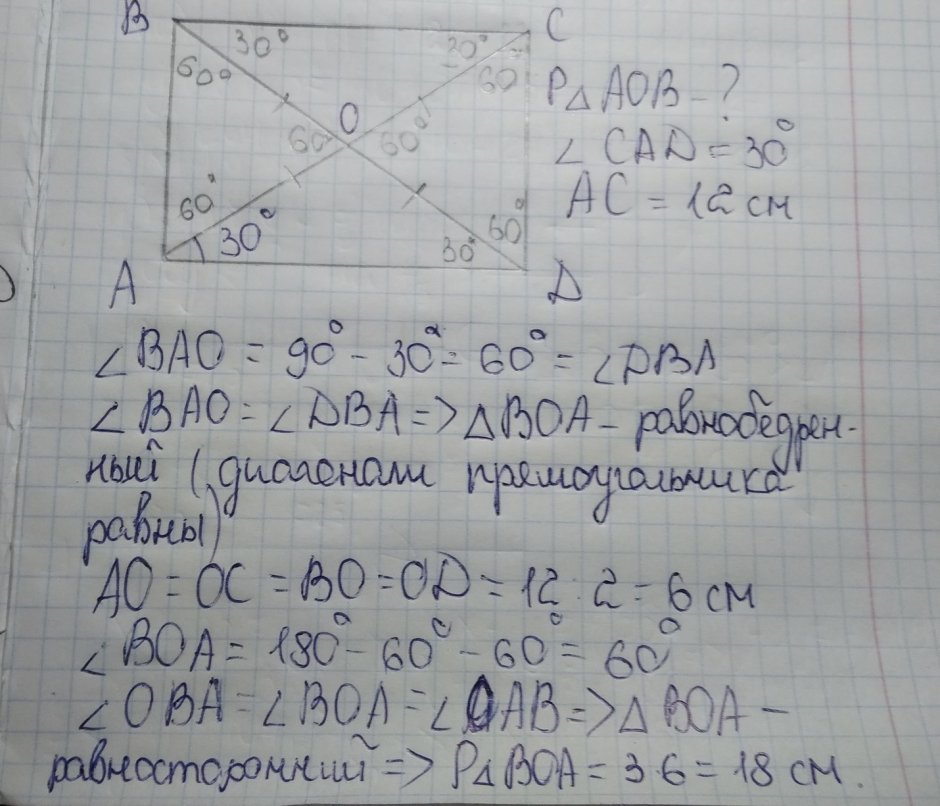 B
C
30°
30°
60°
60
O
60°
60°
60°
30°
30°
60°
A
D
P△AOB - ?
∠CAD = 30°
AC = 12 см
∠BAO = 90° - 30° = 60° = ∠DBA
∠BAO = ∠DBA => △BOA - равнобедрен-
ный (диагонали прямоугольника
равны)
AO = OC = BO = OD = 12 : 2 = 6 см
∠BOA = 180° - 60° - 60° = 60°
∠OBA = ∠BOA = ∠OAB => △BOA -
равносторонний => P△BOA = 3·6 = 18 см.